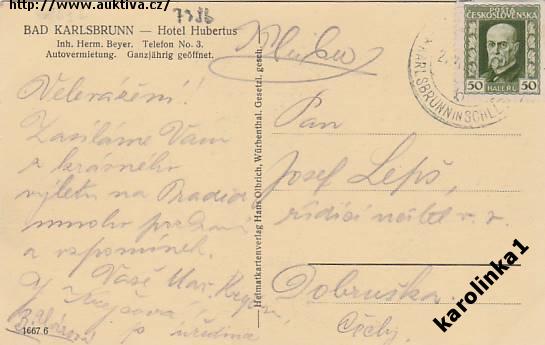 http://www.auktiva.cz/
7396
BAD KARLSBRUNN — Hotel Hubertus
Inh. Herm. Beyer. Telefon No. 3.
Autovermietung. Ganzjährig geöffnet.
POŠTA
ČESKOSLOVENSKÁ
50 50
HALÉŘŮ
KARLSBRUNN IN SCHLES
Velevážení!
Zasíláme Vám
z krásného
výletu na Praděd
mnoho pozdravů
a vzpomínek.
Vaše
s rodinou
1667 6
Heimatkartenverlag Hans Olbrich, Würbenthal. Gesetzl. gesch.
Pan
Josef Lepš,
řídící učitel v. v.
Dobruška.
Čechy.
karolinka1